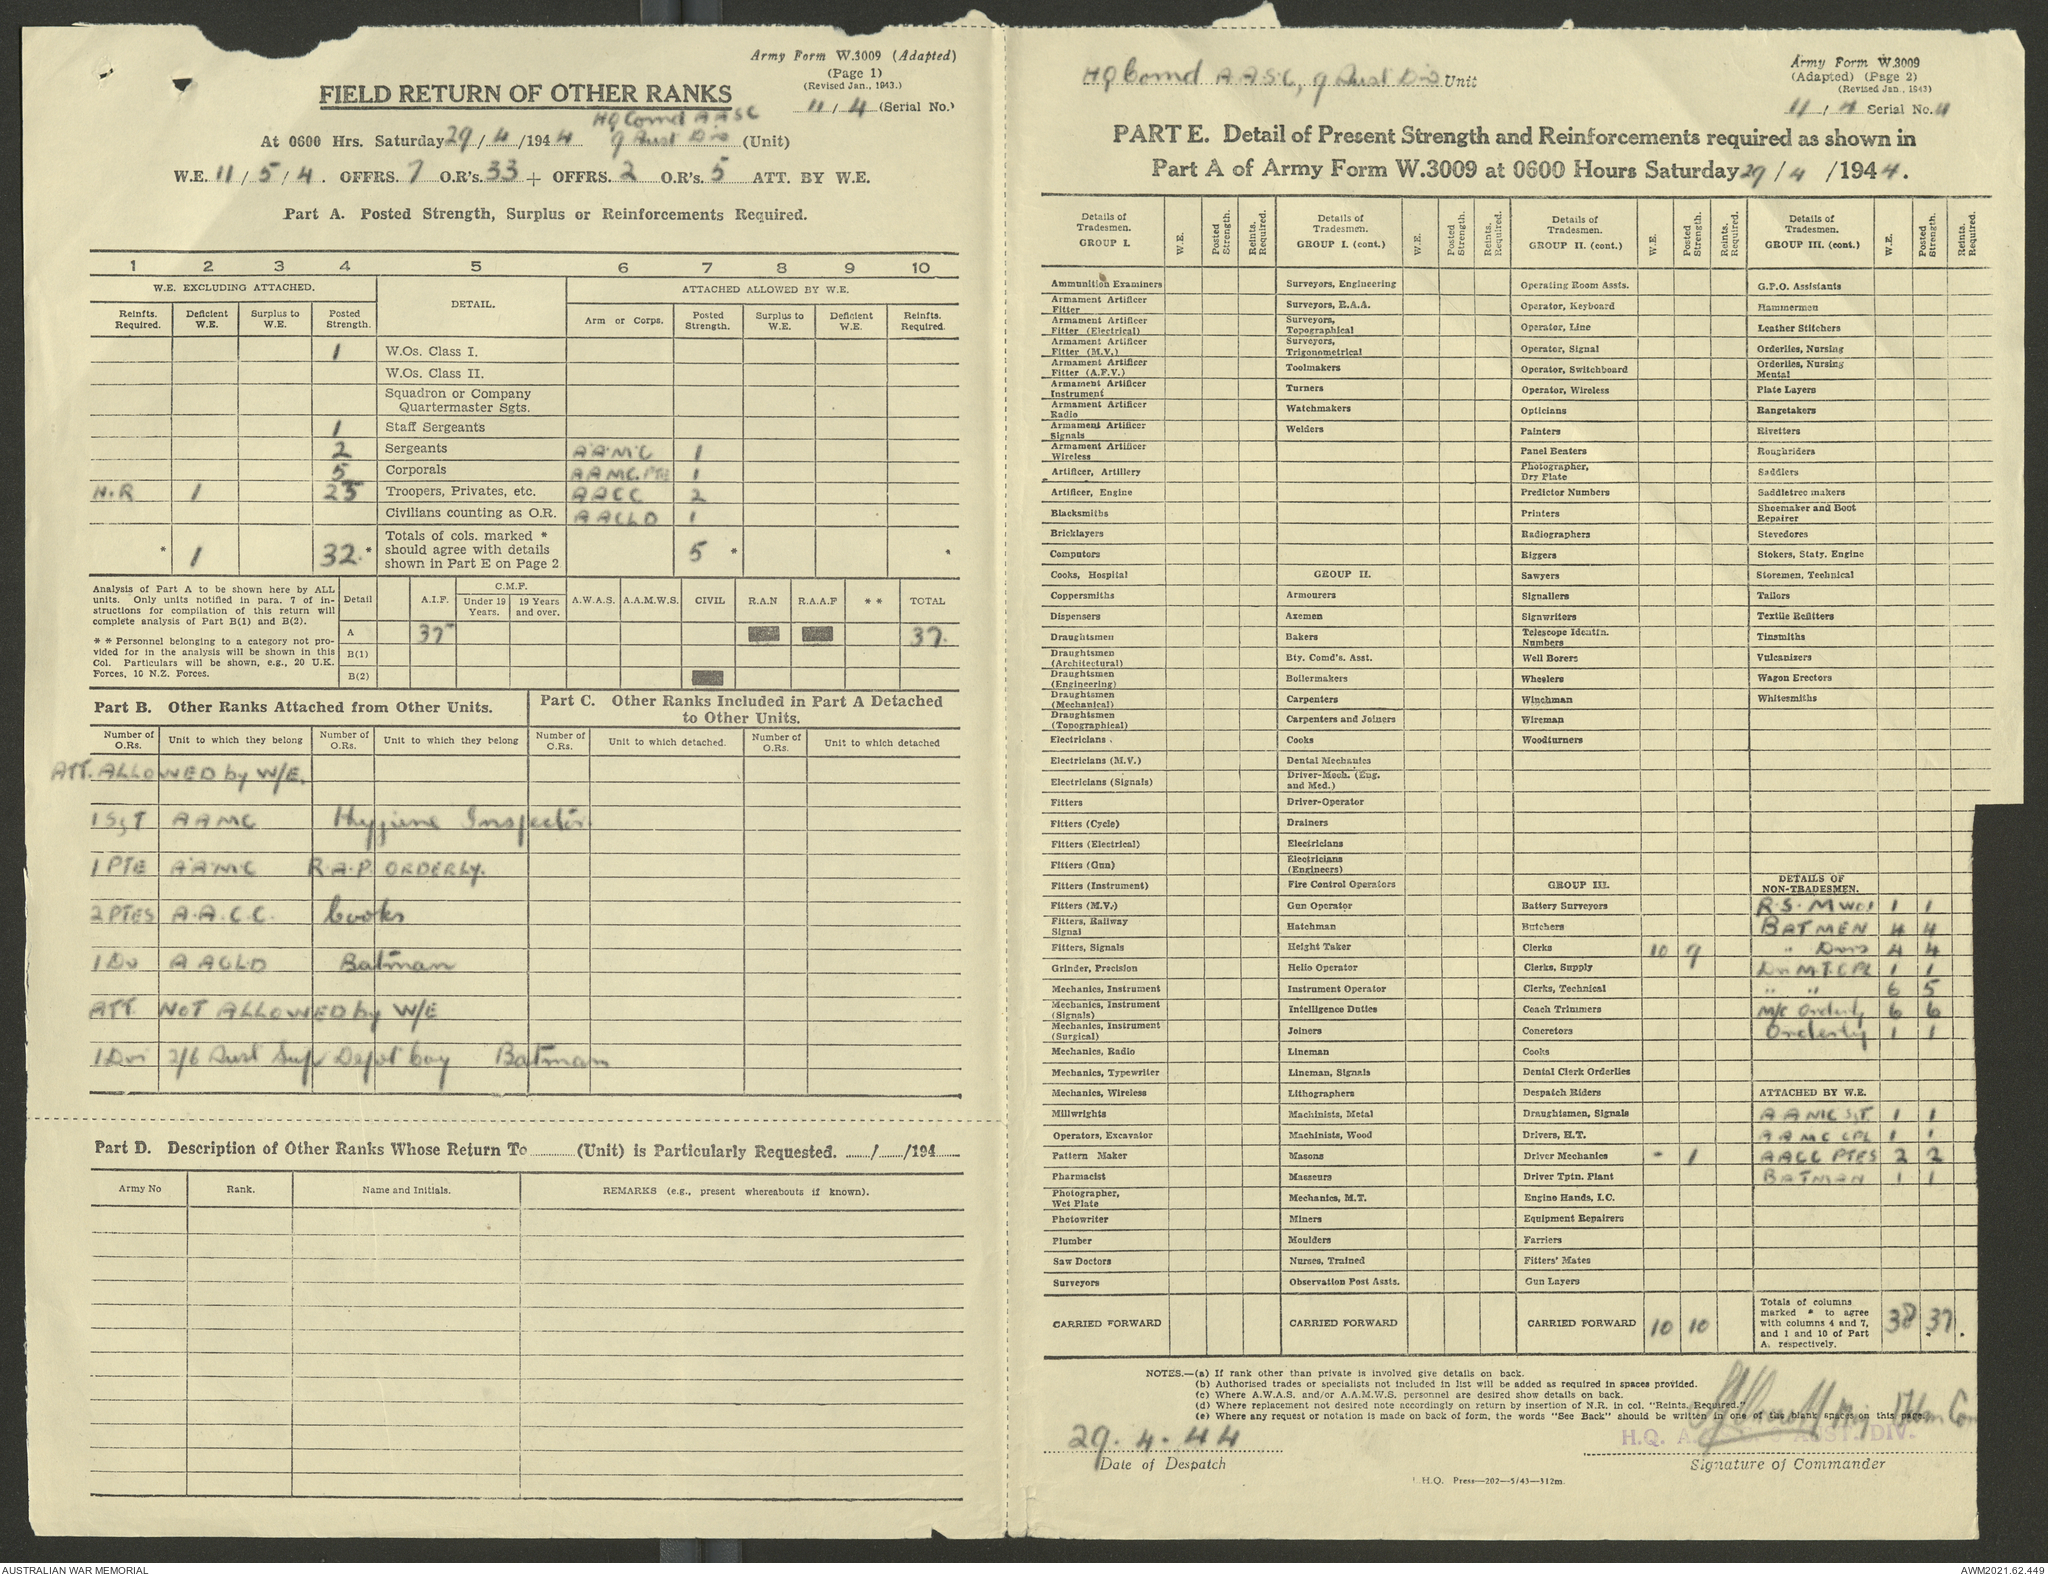 Army Form W.3009 (Adapted)
(Page 1)
(Revised Jan., 1943.)
FIELD RETURN OF OTHER RANKS
11 / 4 (Serial No.)
HQ Comd A A S C
At 0600 Hrs. Saturday 29 / 4 /1944 9 Aust Div (Unit)
W.E. 11 / 5 / 4. OFFRS. 7 O.R's. 33 + OFFRS. 2 O.R's. 5 ATT. BY W.E.
Part A. Posted Strength, Surplus or Reinforcements Required.
1 2 3 4 5 6 7 8 9 10
W.E. EXCLUDING ATTACHED. DETAIL. ATTACHED ALLOWED BY W.E.
Reinfts. Required. Deficient W.E. Surplus to W.E. Posted Strength. Arm or Corps. Posted Strength. Surplus to W.E. Deficient W.E. Reinfts. Required.
1 W.Os. Class I.
W.Os. Class II.
Squadron or Company
Quartermaster Sgts.
1 Staff Sergeants
2 Sergeants A.A.M.C 1
5 Corporals AAMC. PTE 1
N.R 1 23 Troopers, Privates, etc. AACC 2
Civilians counting as O.R. AACLD 1
* 1 32 * Totals of cols. marked * should agree with details shown in Part E on Page 2 5 * *
Analysis of Part A to be shown here by ALL
units. Only units notified in para. 7 of in-
structions for compilation of this return will
complete analysis of Part B(1) and B(2).
* * Personnel belonging to a category not pro-
vided for in the analysis will be shown in this
Col. Particulars will be shown, e.g., 20 U.K.
Forces, 10 N.Z. Forces.
Detail A.I.F. C.M.F. Under 19 Years. 19 Years and over. A.W.A.S. A.A.M.W.S. CIVIL R.A.N R.A.A.F * * TOTAL
A 37 37.
B(1)
B(2)
Part B. Other Ranks Attached from Other Units.
Part C. Other Ranks Included in Part A Detached
to Other Units.
Number of O.Rs. Unit to which they belong Number of O.Rs. Unit to which they belong Number of O.Rs. Unit to which detached. Number of O.Rs. Unit to which detached
ATT. ALLOWED by W/E.
1 Sgt AAMC Hygiene Inspector.
1 PTE A.A.M.C R.A.P. ORDERLY.
2 PTES A.A.C.C. Cooks
1 Dvr AACLD Batman
ATT. NOT ALLOWED by W/E
1 Dvr 2/6 Aust Sup Depot Coy Batman
Part D. Description of Other Ranks Whose Return To ............ (Unit) is Particularly Requested. ....../....../194......
Army No Rank. Name and Initials. REMARKS (e.g., present whereabouts if known).
HQ Comd A.A.S.C, 9 Aust Div Unit
Army Form W.3009
(Adapted) (Page 2)
(Revised Jan., 1943)
11 / 4 Serial No. 11
PART E. Detail of Present Strength and Reinforcements required as shown in
Part A of Army Form W.3009 at 0600 Hours Saturday 29 / 4 /1944.
Details of Tradesmen. GROUP I. W.E. Posted Strength. Reints. Required.
Ammunition Examiners
Armament Artificer Fitter
Armament Artificer Fitter (Electrical)
Armament Artificer Fitter (M.V.)
Armament Artificer Fitter (A.F.V.)
Armament Artificer Instrument
Armament Artificer Radio
Armament Artificer Signals
Armament Artificer Wireless
Artificer, Artillery
Artificer, Engine
Blacksmiths
Bricklayers
Computors
Cooks, Hospital
Coppersmiths
Dispensers
Draughtsmen
Draughtsmen (Architectural)
Draughtsmen (Engineering)
Draughtsmen (Mechanical)
Draughtsmen (Topographical)
Electricians
Electricians (M.V.)
Electricians (Signals)
Fitters
Fitters (Cycle)
Fitters (Electrical)
Fitters (Gun)
Fitters (Instrument)
Fitters (M.V.)
Fitters, Railway Signal
Fitters, Signals
Grinder, Precision
Mechanics, Instrument
Mechanics, Instrument (Signals)
Mechanics, Instrument (Surgical)
Mechanics, Radio
Mechanics, Typewriter
Mechanics, Wireless
Millwrights
Operators, Excavator
Pattern Maker
Pharmacist
Photographer, Wet Plate
Photowriter
Plumber
Saw Doctors
Surveyors
CARRIED FORWARD
Details of Tradesmen. GROUP I. (cont.) W.E. Posted Strength. Reints. Required.
Surveyors, Engineering
Surveyors, R.A.A.
Surveyors, Topographical
Surveyors, Trigonometrical
Toolmakers
Turners
Watchmakers
Welders
GROUP II.
Armourers
Axemen
Bakers
Bty. Comd's. Asst.
Boilermakers
Carpenters
Carpenters and Joiners
Cooks
Dental Mechanics
Driver-Mech. (Eng. and Med.)
Driver-Operator
Drainers
Electricians
Electricians (Engineers)
Fire Control Operators
Gun Operator
Hatchman
Height Taker
Helio Operator
Instrument Operator
Intelligence Duties
Joiners
Lineman
Lineman, Signals
Lithographers
Machinists, Metal
Machinists, Wood
Masons
Masseurs
Mechanics, M.T.
Miners
Moulders
Nurses, Trained
Observation Post Assts.
CARRIED FORWARD
Details of Tradesmen. GROUP II. (cont.) W.E. Posted Strength. Reints. Required.
Operating Room Assts.
Operator, Keyboard
Operator, Line
Operator, Signal
Operator, Switchboard
Operator, Wireless
Opticians
Painters
Panel Beaters
Photographer, Dry Plate
Predictor Numbers
Printers
Radiographers
Riggers
Sawyers
Signallers
Signwriters
Telescope Identfn. Numbers
Well Borers
Wheelers
Winchman
Wireman
Woodturners
GROUP III.
Battery Surveyors
Butchers
Clerks 10 9
Clerks, Supply
Clerks, Technical
Coach Trimmers
Concretors
Cooks
Dental Clerk Orderlies
Despatch Riders
Draughtsmen, Signals
Drivers, H.T.
Driver Mechanics - 1
Driver Tptn. Plant
Engine Hands, I.C.
Equipment Repairers
Farriers
Fitters' Mates
Gun Layers
CARRIED FORWARD 10 10
Details of Tradesmen. GROUP III. (cont.) W.E. Posted Strength. Reints. Required.
G.P.O. Assistants
Hammermen
Leather Stitchers
Orderlies, Nursing
Orderlies, Nursing Mental
Plate Layers
Rangetakers
Rivetters
Roughriders
Saddlers
Saddletree makers
Shoemaker and Boot Repairer
Stevedores
Stokers, Staty. Engine
Storemen, Technical
Tailors
Textile Refitters
Tinsmiths
Vulcanizers
Wagon Erectors
Whitesmiths
DETAILS OF NON-TRADESMEN.
R.S.M WO1 1 1
BATMEN 4 4
" Dvrs 4 4
Dvr M.T. CPL 1 1
" " 6 5
M/C Orderly 6 6
Orderly 1 1
ATTACHED BY W.E.
AAMC SGT. 1 1
AAMC CPL 1 1
AACC PTES 2 2
BATMAN 1 1
Totals of columns marked * to agree with columns 4 and 7, and 1 and 10 of Part A. respectively. 38 37.
NOTES.—(a) If rank other than private is involved give details on back.
(b) Authorised trades or specialists not included in list will be added as required in spaces provided.
(c) Where A.W.A.S. and/or A.A.M.W.S. personnel are desired show details on back.
(d) Where replacement not desired note accordingly on return by insertion of N.R. in col. "Reints. Required."
(e) Where any request or notation is made on back of form, the words "See Back" should be written in one of the blank spaces on this page.
29.4.44
H.Q. A AUST. DIV.
Date of Despatch
Signature of Commander
H.Q. Press—202—5/43—312m.
AUSTRALIAN WAR MEMORIAL
AWM2021.62.449